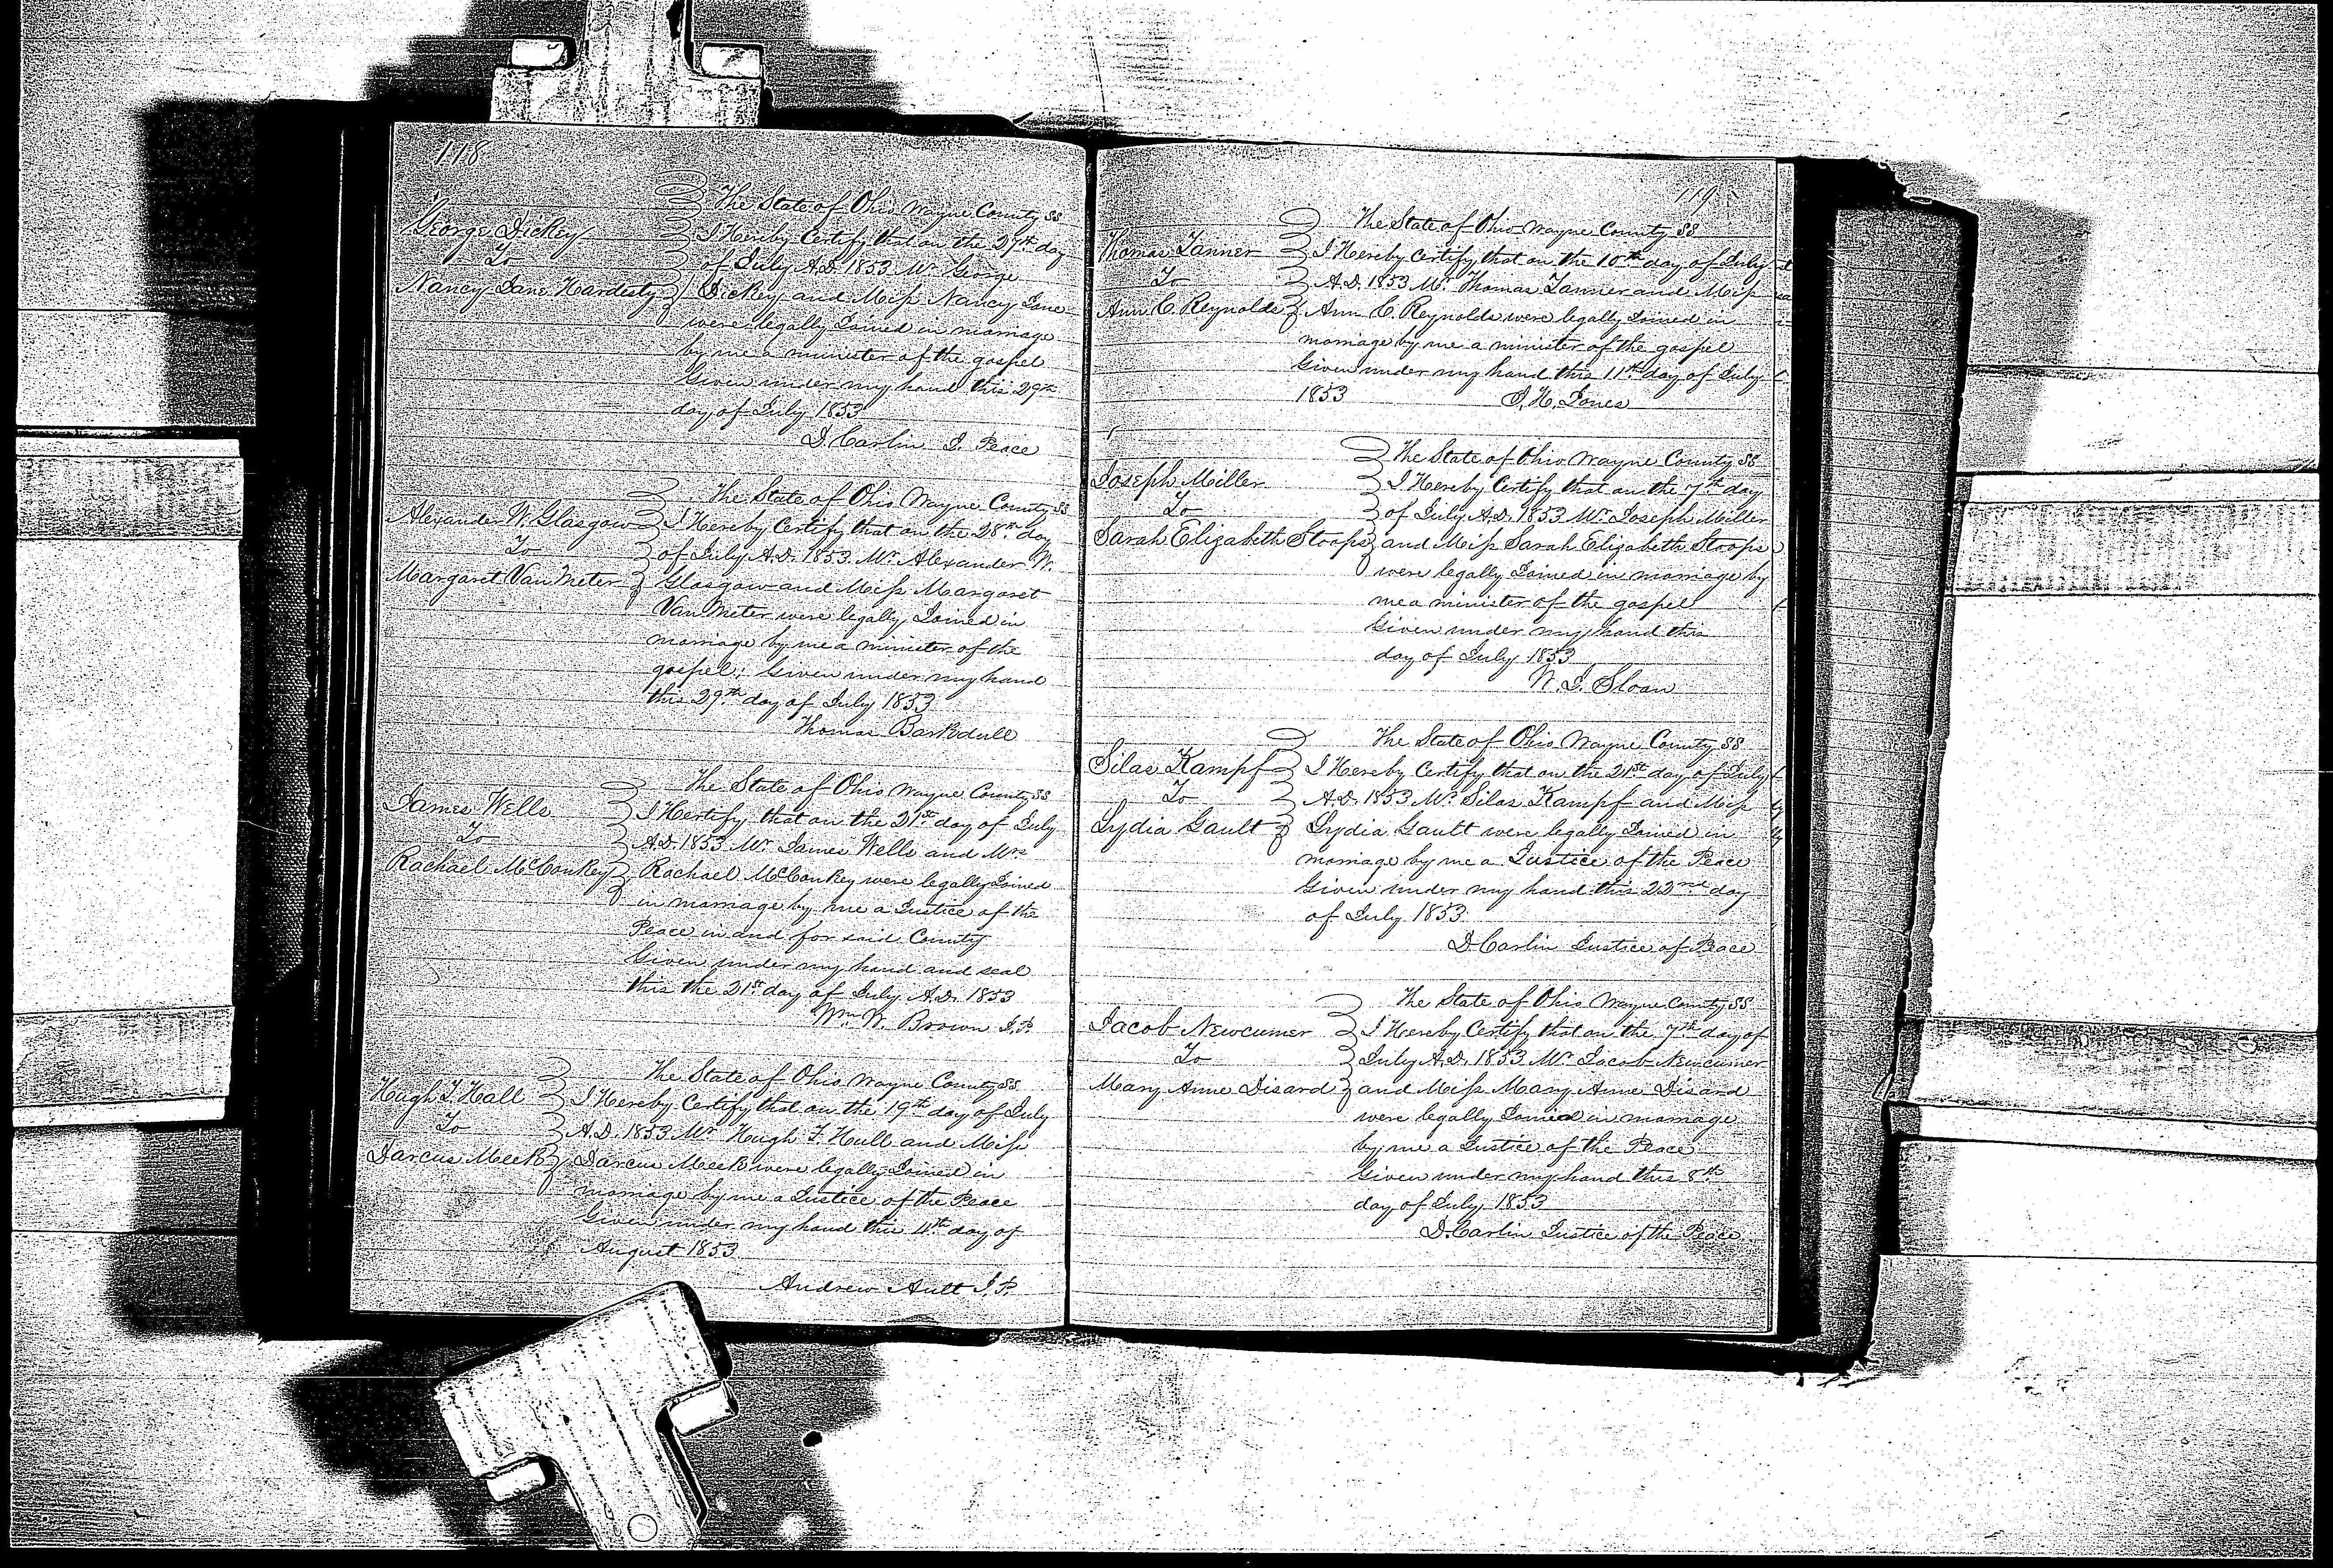 118
The State of Ohio Wayne County SS
George Dickey
I Hereby Certify that on the 27th day
To
of July A.D. 1853 Mr George
Nancy Jane Hardesty
Dickey and Miss Nancy Jane
were legally Joined in marriage
by me a minister of the gospel
Given under my hand this 29th
day of July 1853
D. Carlin J. Peace
The State of Ohio Wayne County SS
Alexander W. Glasgow
I Hereby Certify that on the 28th day
To
of July A.D. 1853 Mr Alexander W.
Margaret Van Meter
Glasgow and Miss Margaret
Van Meter were legally Joined in
marriage by me a minister of the
gospel; Given under my hand
this 29th day of July 1853
Thomas Barkdull
The State of Ohio Wayne County SS
James Wells
I Hertify that on the 21st day of July
To
A.D. 1853 Mr James Wells and Mrs
Rachael McConkey
Rachael McConkey were legally Joined
in marriage by me a Justice of the
Peace in and for said County
Given under my hand and seal
this the 21st day of July A.D. 1853
Wm W. Brown J.P.
The State of Ohio Wayne County SS
Hugh T. Hall
I Hereby Certify that on the 19th day of July
To
A.D. 1853 Mr Hugh T. Hull and Miss
Darcus Meek
Darcus Meek were legally Joined in
marriage by me a Justice of the Peace
Given under my hand this 4th day of
August 1853
Andrew Ault J.P.
119
The State of Ohio Wayne County SS
Thomas Tanner
I Hereby Certify that on the 10th day of July
To
A.D. 1853 Mr Thomas Tanner and Miss
Ann C. Reynolds
Ann C. Reynolds were legally Joined in
marriage by me a minister of the gospel
Given under my hand this 11th day of July
1853 J. H. Jones
The State of Ohio Wayne County SS
Joseph Miller
I Hereby Certify that on the 7th day
To
of July A.D. 1853 Mr Joseph Miller
Sarah Elizabeth Stoops
and Miss Sarah Elizabeth Stoops
were legally Joined in marriage by
me a minister of the gospel
Given under my hand this
day of July 1853
W. J. Sloan
The State of Ohio Wayne County SS
Silas Kampf
I Hereby Certify that on the 21st day of July
To
A.D. 1853 Mr Silas Kampf and Miss
Lydia Gault
Lydia Gault were legally Joined in
marriage by me a Justice of the Peace
Given under my hand this 22nd day
of July 1853
D. Carlin Justice of Peace
The State of Ohio Wayne County SS
Jacob Newcumer
I Hereby Certify that on the 7th day of
To
July A.D. 1853 Mr Jacob Newcumer
Mary Anne Disard
and Miss Mary Anne Disard
were legally Joined in marriage
by me a Justice of the Peace
Given under my hand this 8th
day of July 1853
D. Carlin Justice of the Peace